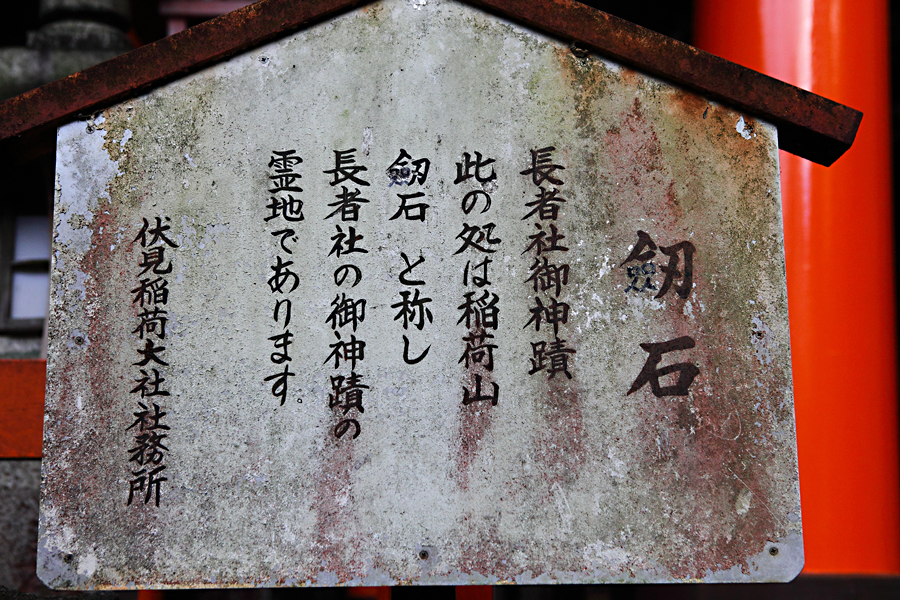 劔石
長者社御神蹟
此の処は稲荷山
劔石 と称し
長者社の御神蹟の
霊地であります。
伏見稲荷大社社務所